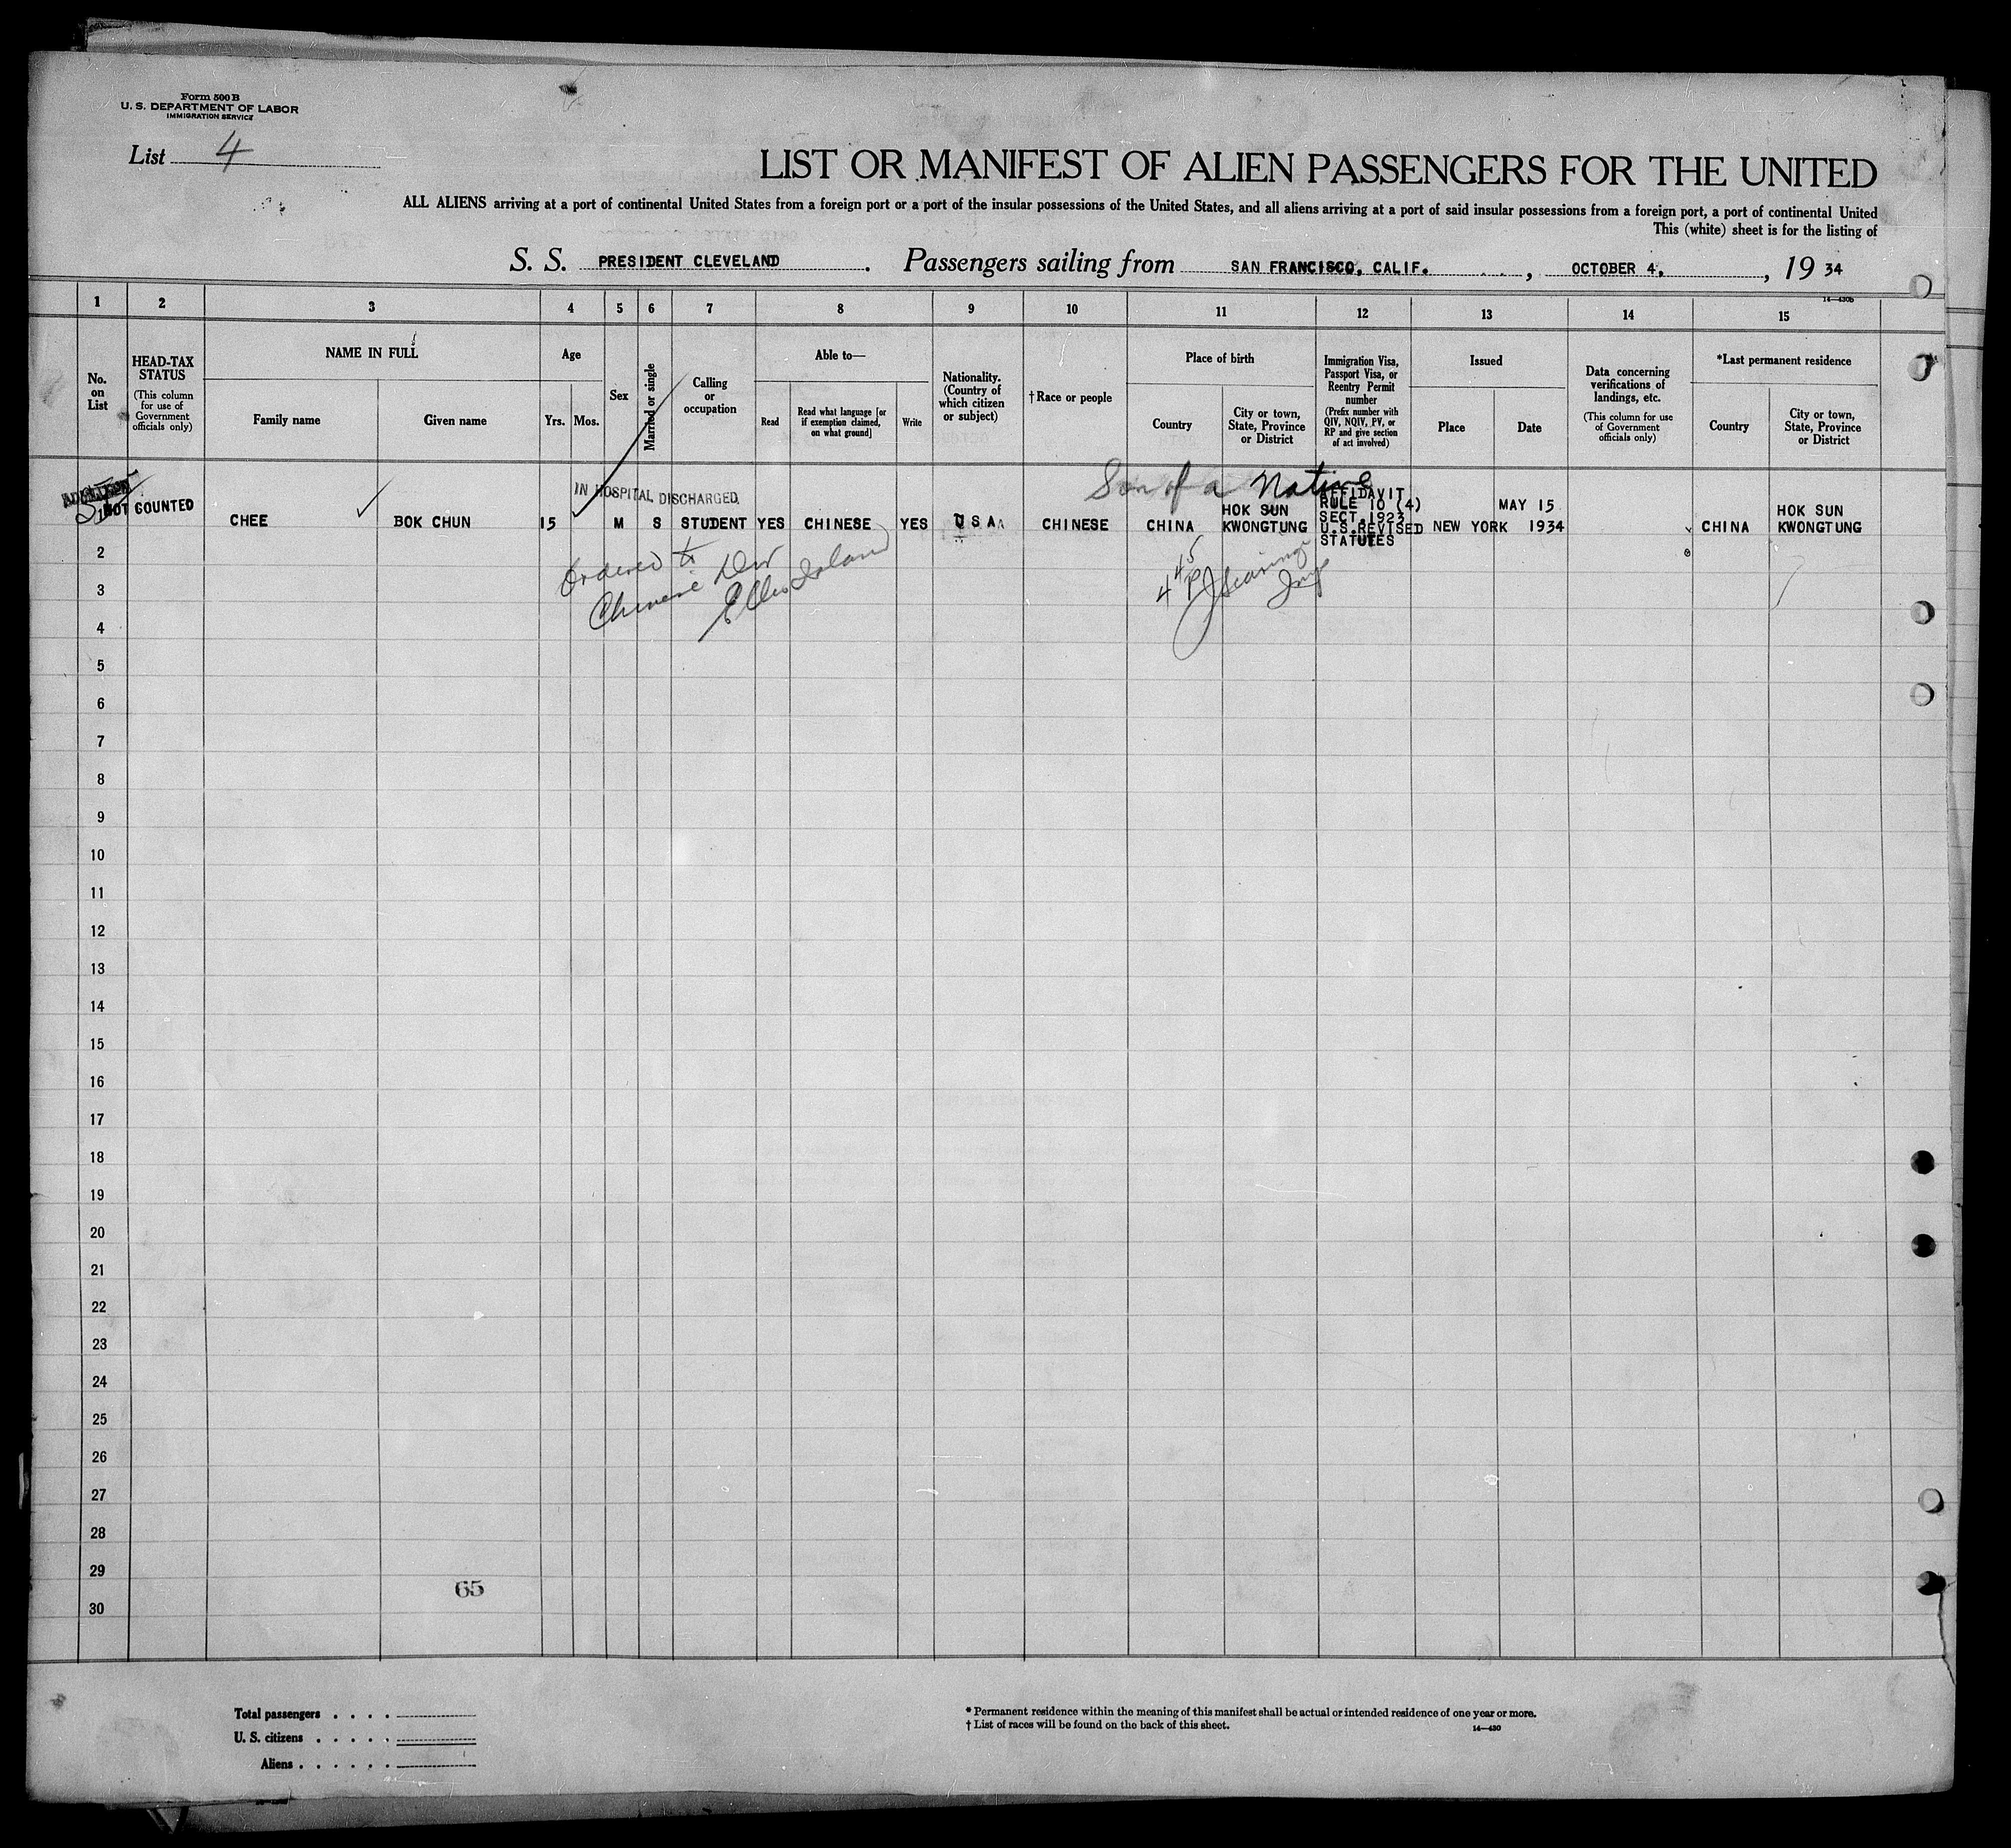 Form 500 B
U. S. DEPARTMENT OF LABOR
IMMIGRATION SERVICE
List 4
LIST OR MANIFEST OF ALIEN PASSENGERS FOR THE UNITED
ALL ALIENS arriving at a port of continental United States from a foreign port or a port of the insular possessions of the United States, and all aliens arriving at a port of said insular possessions from a foreign port, a port of continental United
This (white) sheet is for the listing of
S. S. PRESIDENT CLEVELAND. Passengers sailing from SAN FRANCISCO, CALIF., OCTOBER 4, , 19 34
14—430b
1 2 3 4 5 6 7 8 9 10 11 12 13 14 15
No. on List
HEAD-TAX STATUS
(This column for use of Government officials only)
NAME IN FULL
Family name
Given name
Age
Yrs. Mos.
Sex
Married or single
Calling or occupation
Able to—
Read
Read what language [or if exemption claimed, on what ground]
Write
Nationality. (Country of which citizen or subject)
†Race or people
Place of birth
Country
City or town, State, Province or District
Immigration Visa, Passport Visa, or Reentry Permit number
(Prefix number with QIV, NQIV, PV, or RP and give section of act involved)
Issued
Place
Date
Data concerning verifications of landings, etc.
(This column for use of Government officials only)
*Last permanent residence
Country
City or town, State, Province or District
Son of a Native
ADMITTED
NOT COUNTED
IN HOSPITAL DISCHARGED
1 CHEE BOK CHUN 15 M S STUDENT YES CHINESE YES U S A CHINESE CHINA
HOK SUN
KWONGTUNG
AFFIDAVIT
RULE 10 (4)
SECT.1923
U.S.REVISED
STATUTES
NEW YORK
MAY 15
1934
CHINA
HOK SUN
KWONGTUNG
Ordered to
Chinese Div
Ellis Island
4 45 P
2
3
4
5
6
7
8
9
10
11
12
13
14
15
16
17
18
19
20
21
22
23
24
25
26
27
28
29
30
65
Total passengers
U. S. citizens
Aliens
* Permanent residence within the meaning of this manifest shall be actual or intended residence of one year or more.
† List of races will be found on the back of this sheet.
14—430